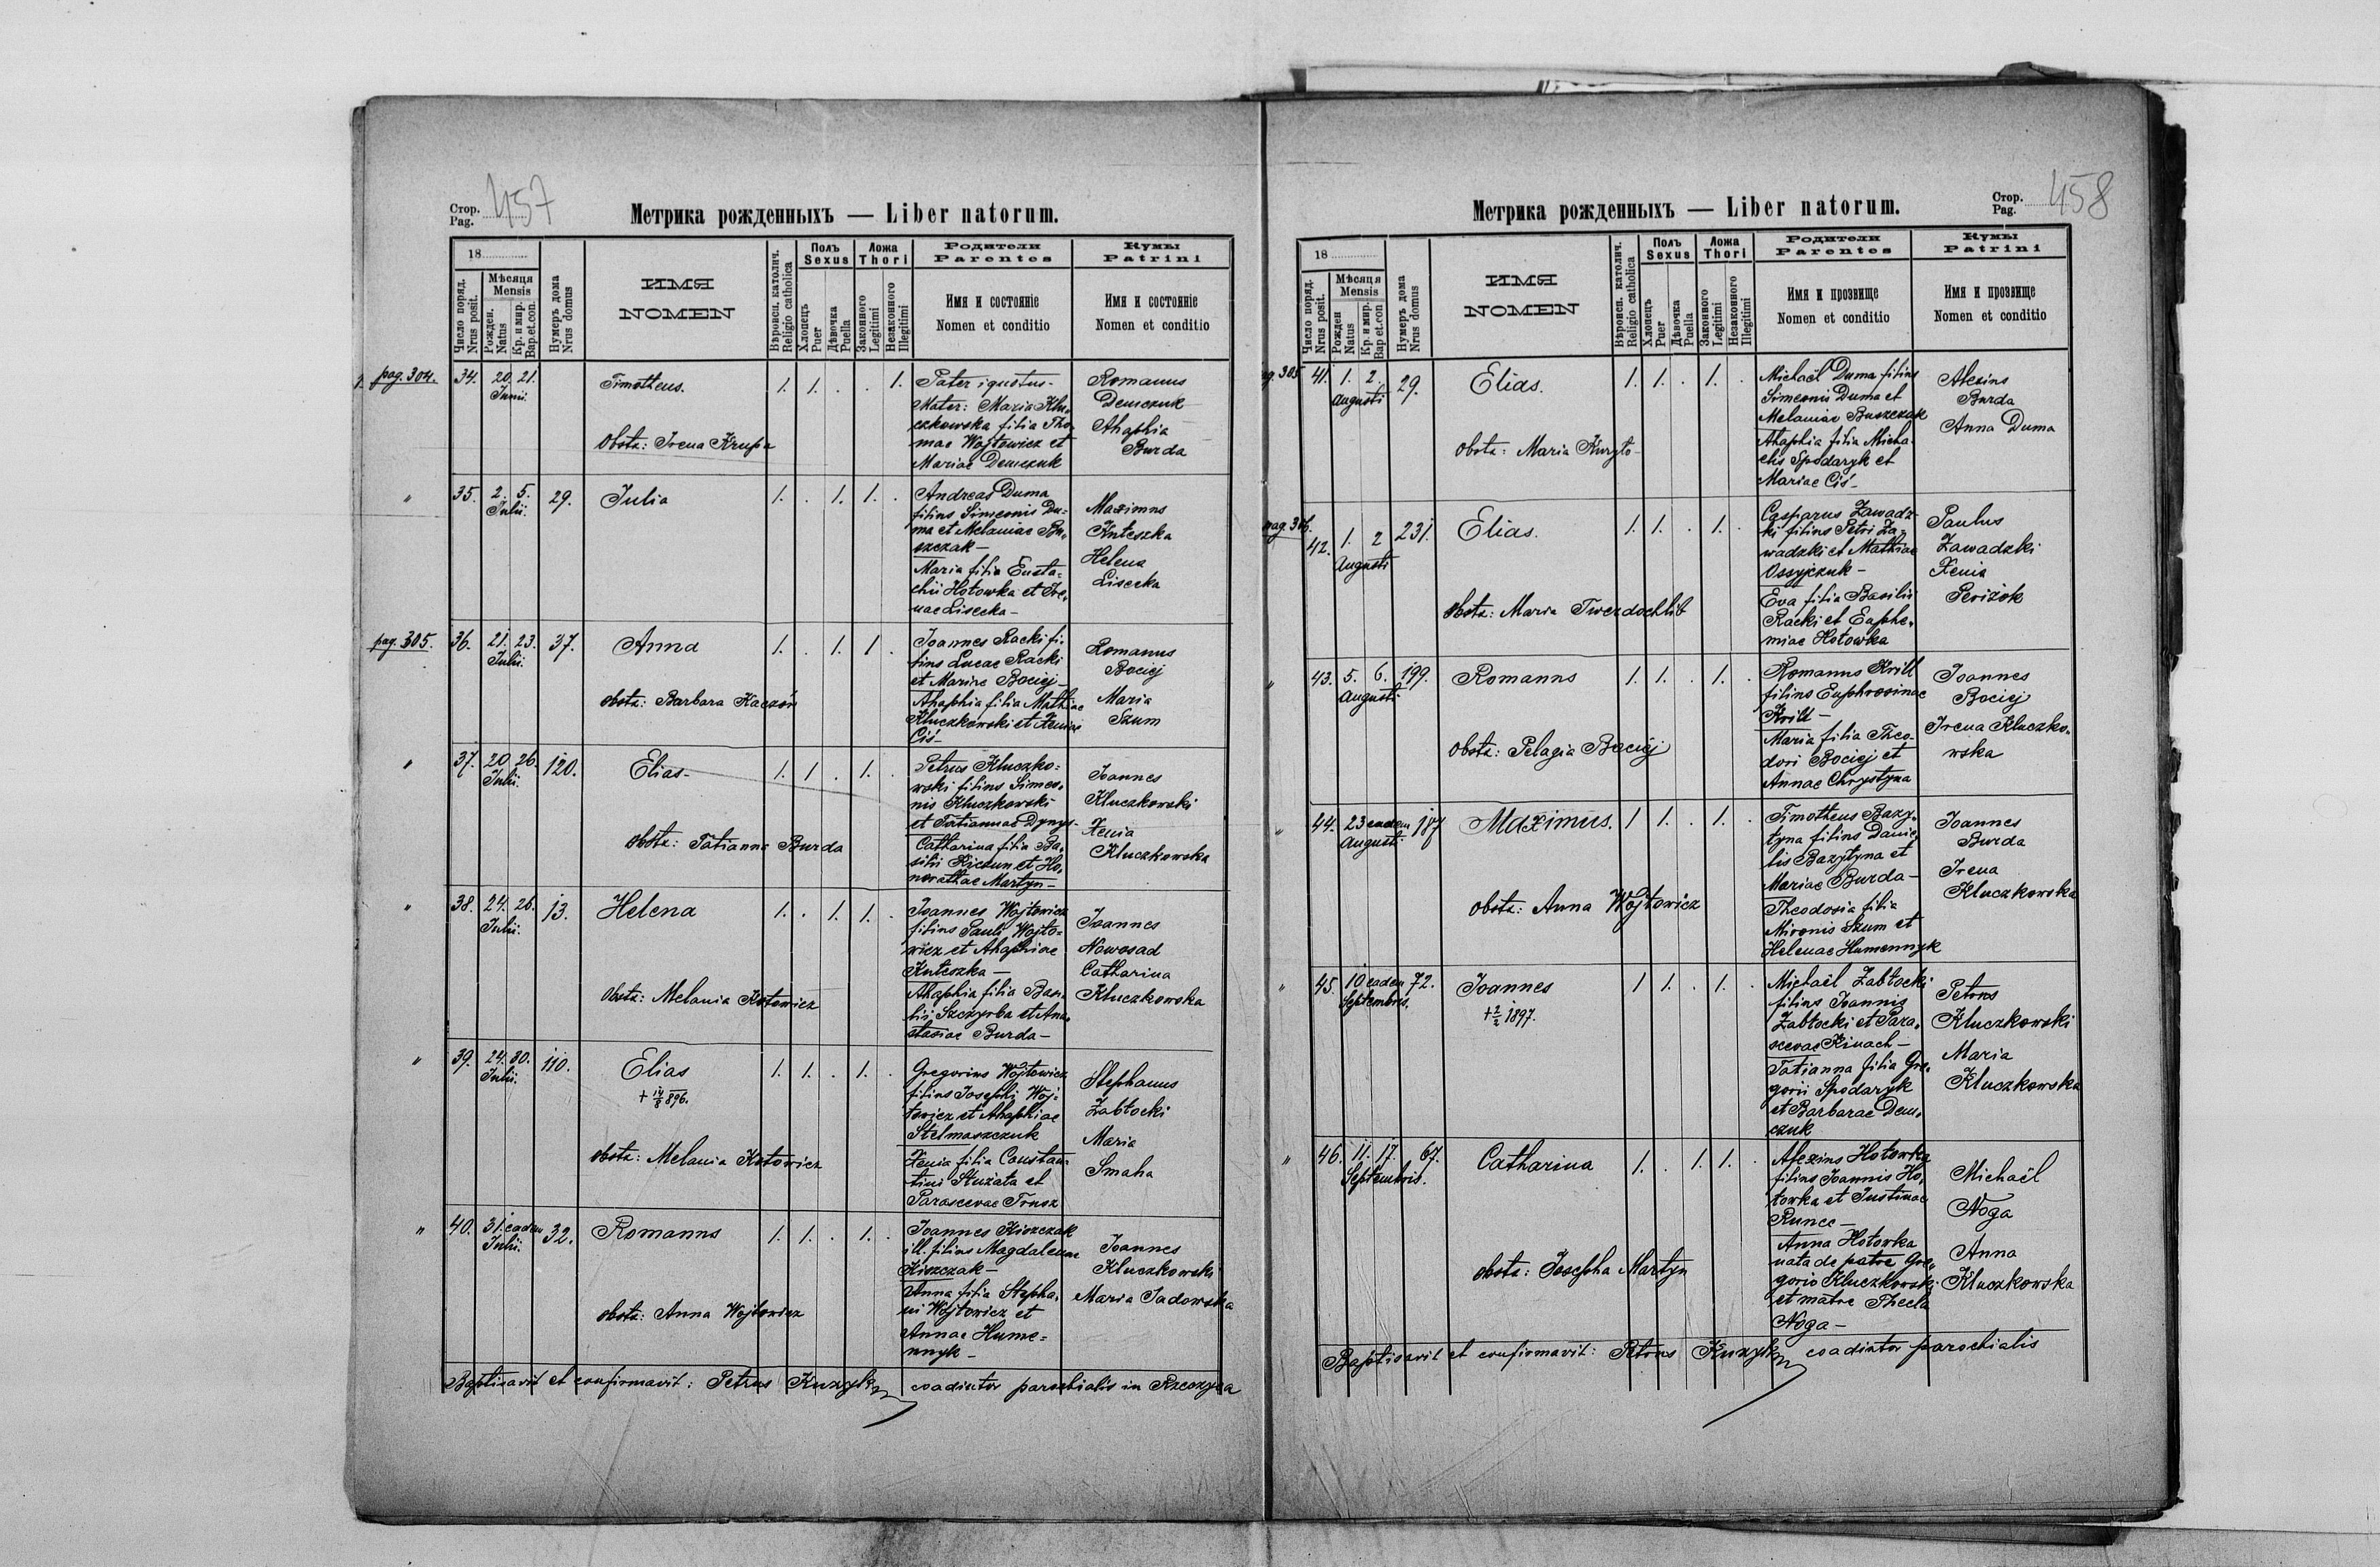 Стор.
Pag. 457
Метрика рожденныхъ — Liber natorum.
18
Число поряд.
Nrus posit.
Мѣсяця
Mensis
Рожден.
Natus
Кр. и мир.
Bap.et.con.
Нумеръ дома
Nrus domus
ИМЯ
NOMEN
Вѣроисп. католич.
Religio catholica
Полъ
Sexus
Хлопецъ
Puer
Дѣвочка
Puella
Ложа
Thori
Законного
Legitimi
Незаконного
Illegitimi
Родители
Parentes
Имя и состояніе
Nomen et conditio
Кумы
Patrini
Имя и состояніе
Nomen et conditio
pag. 304. 34. 20. 21. Junii. Timotheus. 1. 1. . . 1.
obstz: Irena Krupa
Pater ignotus -
Mater: Maria Klu-
czkowska filia Tho-
mae Wojtowicz et
Mariae Demczuk
Romanus
Demczuk
Ahaphia
Burda
" 35. 2. 5. Julii. 29. Julia 1. . 1. 1. .
Andreas Duma
filius Simeonis Du-
ma et Melaniae Bu-
szczak -
Maria filia Eusta-
chii Hotowka et Ire-
nae Lisecka -
Maximus
Kuteszka
Helena
Lisecka
pag. 305. 36. 21. 23. Julii. 37. Anna 1. . 1. 1 .
obstz: Barbara Kaczor
Joannes Racki fi-
lius Lucae Racki
et Mariae Bociej -
Ahaphia filia Mathiae
Kluczkowski et Xeniae
Ciś -
Romanus
Bociej
Maria
Szum
" 37. 20. 26. Julii. 120. Elias - 1. 1 . 1. .
obstz: Tatianna Burda
Petrus Kluczko-
wski filius Simeo-
nis Kluczkowski
et Tatiannae Dynys -
Catharina filia Ba-
silii Ricoun et Ho-
norathae Martyn -
Joannes
Kluczkowski
Xenia
Kluczkowska
" 38. 24. 26. Julii. 13. Helena 1. . 1. 1. .
obstz: Melania Kotowicz
Joannes Wojtowicz
filius Pauli Wojto-
wicz et Ahaphiae
Kuteszka -
Ahaphia filia Basi-
lii Szczyrba et Ana-
stasiae Burda -
Joannes
Nowosad
Catharina
Kluczkowska
" 39. 24. 30. Julii. 110. Elias 1. 1. . 1. .
+ 14/8 896.
obstz: Melania Kotowicz
Gregorius Wojtowicz
filius Josephi Woj-
towicz et Ahaphiae
Stelmaszczuk
Xenia filia Constan-
tini Stużata et
Parascevae Trusz
Stephanus
Zabłocki
Maria
Smaha
" 40. 31. eadem Julii. 32. Romanus 1. 1. . 1. .
obstz: Anna Wojtowicz
Joannes Kiszczak
ill. filius Magdalenae
Kiszczak -
Anna filia Stepha-
ni Wojtowicz et
Annae Hume-
nnyk -
Joannes
Kluczkowski
Maria Sadowska
Baptisavit et confirmavit: Petrus Kuzyk coadiutor parochialis in Rzeczyca
Стор.
Pag. 458
Метрика рожденныхъ — Liber natorum.
18
Число поряд.
Nrus posit.
Мѣсяця
Mensis
Рожден
Natus
Кр. и мир.
Bap et con
Нумеръ дома
Nrus domus
ИМЯ
NOMEN
Вѣроисп. католич.
Religio catholica
Полъ
Sexus
Хлопецъ
Puer
Дѣвочка
Puella
Ложа
Thori
Законного
Legitimi
Незаконного
Illegitimi
Родители
Parentes
Имя и прозвище
Nomen et conditio
Кумы
Patrini
Имя и прозвище
Nomen et conditio
pag. 305 41. 1. 2. Augusti 29. Elias. 1. 1. . 1. .
obstz: Maria Kuryło -
Michaël Duma filius
Simeonis Duma et
Melaniae Buszczak
Ahaphia filia Micha-
elis Spodaryk et
Mariae Ciś -
Alexius
Burda
Anna Duma
pag. 306. 42. 1. 2 Augusti 231. Elias. 1. 1. . 1. .
obstz: Maria Twerdochlib
Casparus Zawadz-
ki filius Petri Za-
wadzki et Mathiae
Ossyjczuk -
Eva filia Basilii
Racki et Euphe-
miae Hotowka
Paulus
Zawadzki
Xenia
Perizok
" 43. 5. 6. Augusti 199. Romanus 1. 1. . 1. .
obstz: Pelagia Bociej
Romanus Krill
filius Euphrosinae
Krill -
Maria filia Theo-
dori Bociej et
Annae Chrystyna
Joannes
Bociej
Irena Kluczko-
wska
" 44. 23 eadem Augusti 187 Maximus. 1 1. . 1. .
obstz: Anna Wojtowicz
Timotheus Bazy-
tyna filius Danie-
lis Bazytyna et
Mariae Burda -
Theodosia filia
Mironis Szum et
Helenae Humennyk
Joannes
Burda
Irena
Kluczkowska
" 45. 10 eadem Septembris. 72. Joannes 1 1. . 1. .
+ 2/2 1897.
Michaël Zabłocki
filius Joannis
Zabłocki et Para-
scevae Kinach -
Tatianna filia Gre-
gorii Spodaryk
et Barbarae Dem-
czuk
Petrus
Kluczkowski
Maria
Kluczkowska
" 46. 11. 17. Septembris. 67. Catharina 1. . 1. 1. .
obstz: Josepha Martyn
Alexius Hotowka
filius Joannis Ho-
towka et Justinae
Runec -
Anna Hotowka
nata de patre Gre-
gorio Kluczkowski
et matre Thecla
Noga -
Michaël
Noga
Anna
Kluczkowska
Baptisavit et confirmavit: Petrus Kuzyk coadiutor parochialis